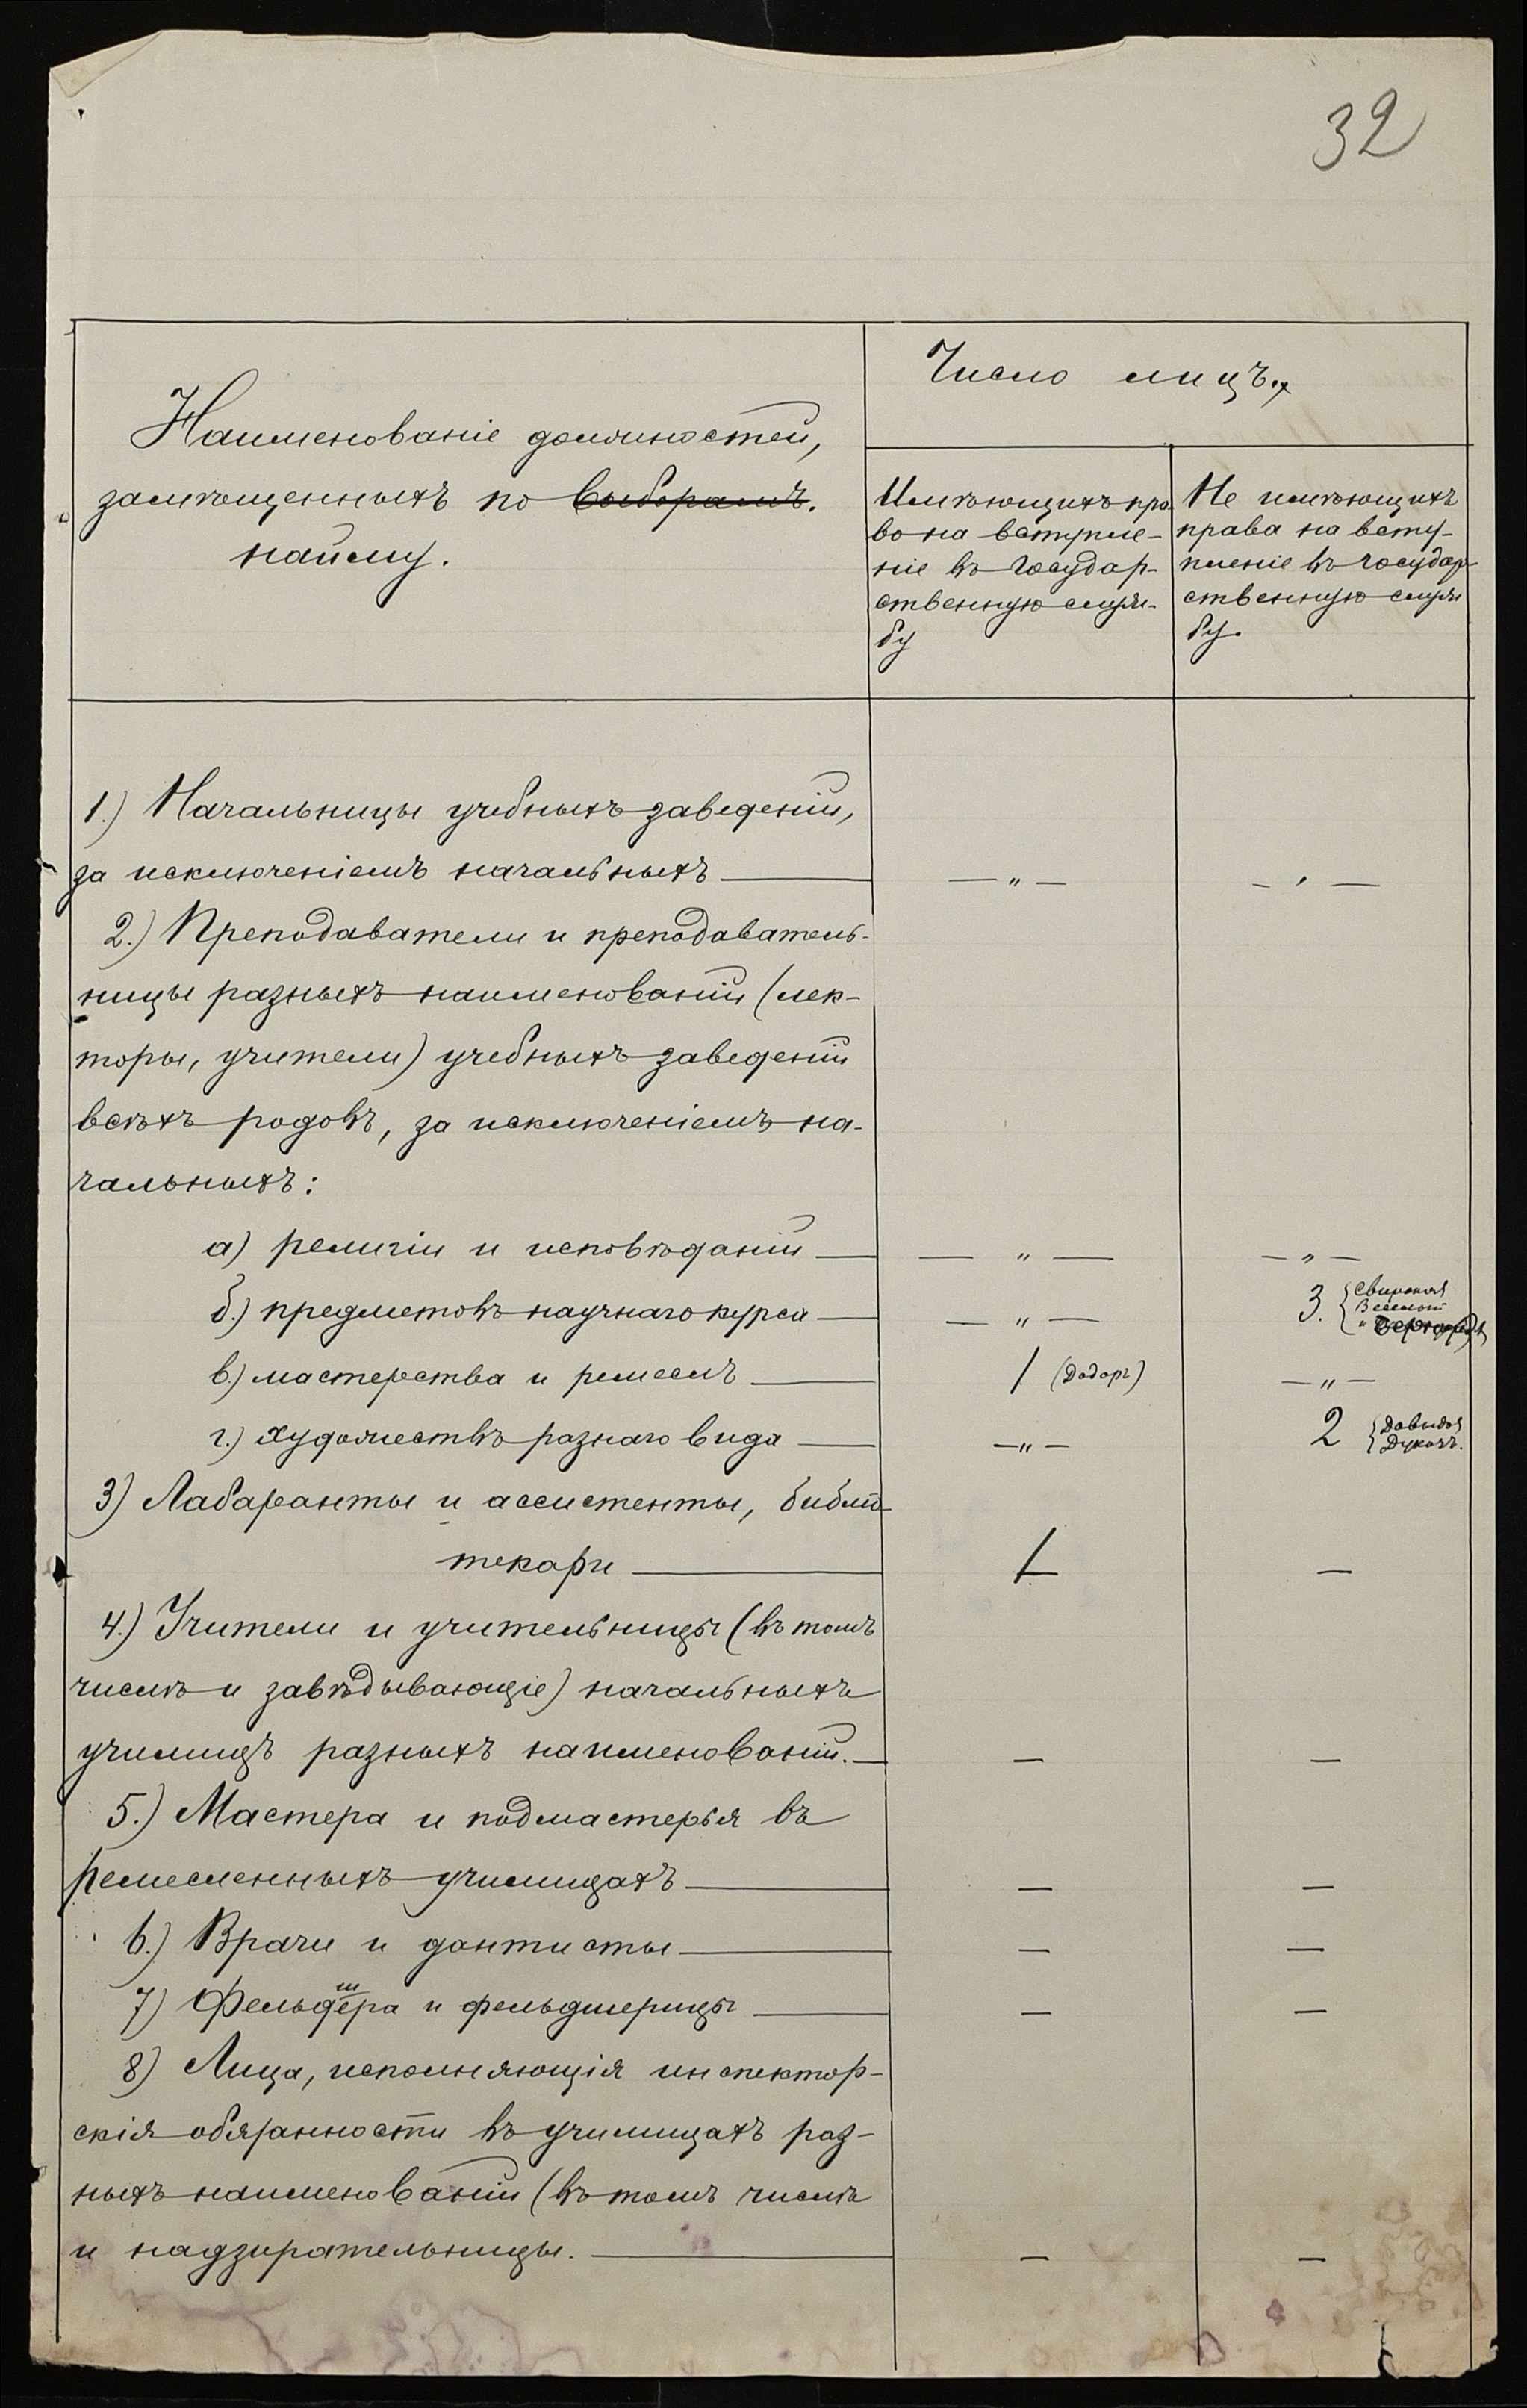 32
Число лицъ.
Наименованіе должностей,
замѣщенныхъ по выборамъ.
найму.
Имѣющихъ пра-
во на вступле-
ніе въ государ-
ственную служ-
бу
Не имѣющихъ
права на всту-
пленіе въ государ-
ственную служ
бу.
1.) Начальницы учебныхъ заведеній,
за исключеніемъ начальныхъ — — " — — " —
2.) Преподаватели и преподаватель-
ницы разныхъ наименованій (лек-
торы, учители) учебныхъ заведеній
всѣхъ родовъ, за исключеніемъ на-
чальныхъ:
а) религіи и исповѣданій — — " — — " —
б.) предметовъ научнаго курса — — " — 3.
в.) мастерства и ремеслъ — 1 (Додоръ) — " —
г.) художествъ разнаго вида — — " — 2 { Давидов
Дукачъ.
3) Лабаранты и ассистенты, библіо
текари — 1 —
4.) Учители и учительницы (въ томъ
числѣ и завѣдывающіе) начальныхъ
училищъ разныхъ наименованій. — — —
5.) Мастера и подмастерья въ
ремесленныхъ училищахъ — — —
6.) Врачи и дантисты — — —
7) Фельдшера и фельдшерицы — — —
8) Лица, исполняющія инспектор-
скія обязанности въ училищахъ раз-
ныхъ наименованій (въ томъ числѣ
и надзирательницы. — — —